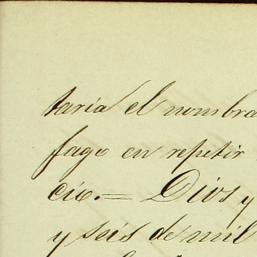 taria el nombra
fago en repetir
cio.= Dios y
y seis de mil